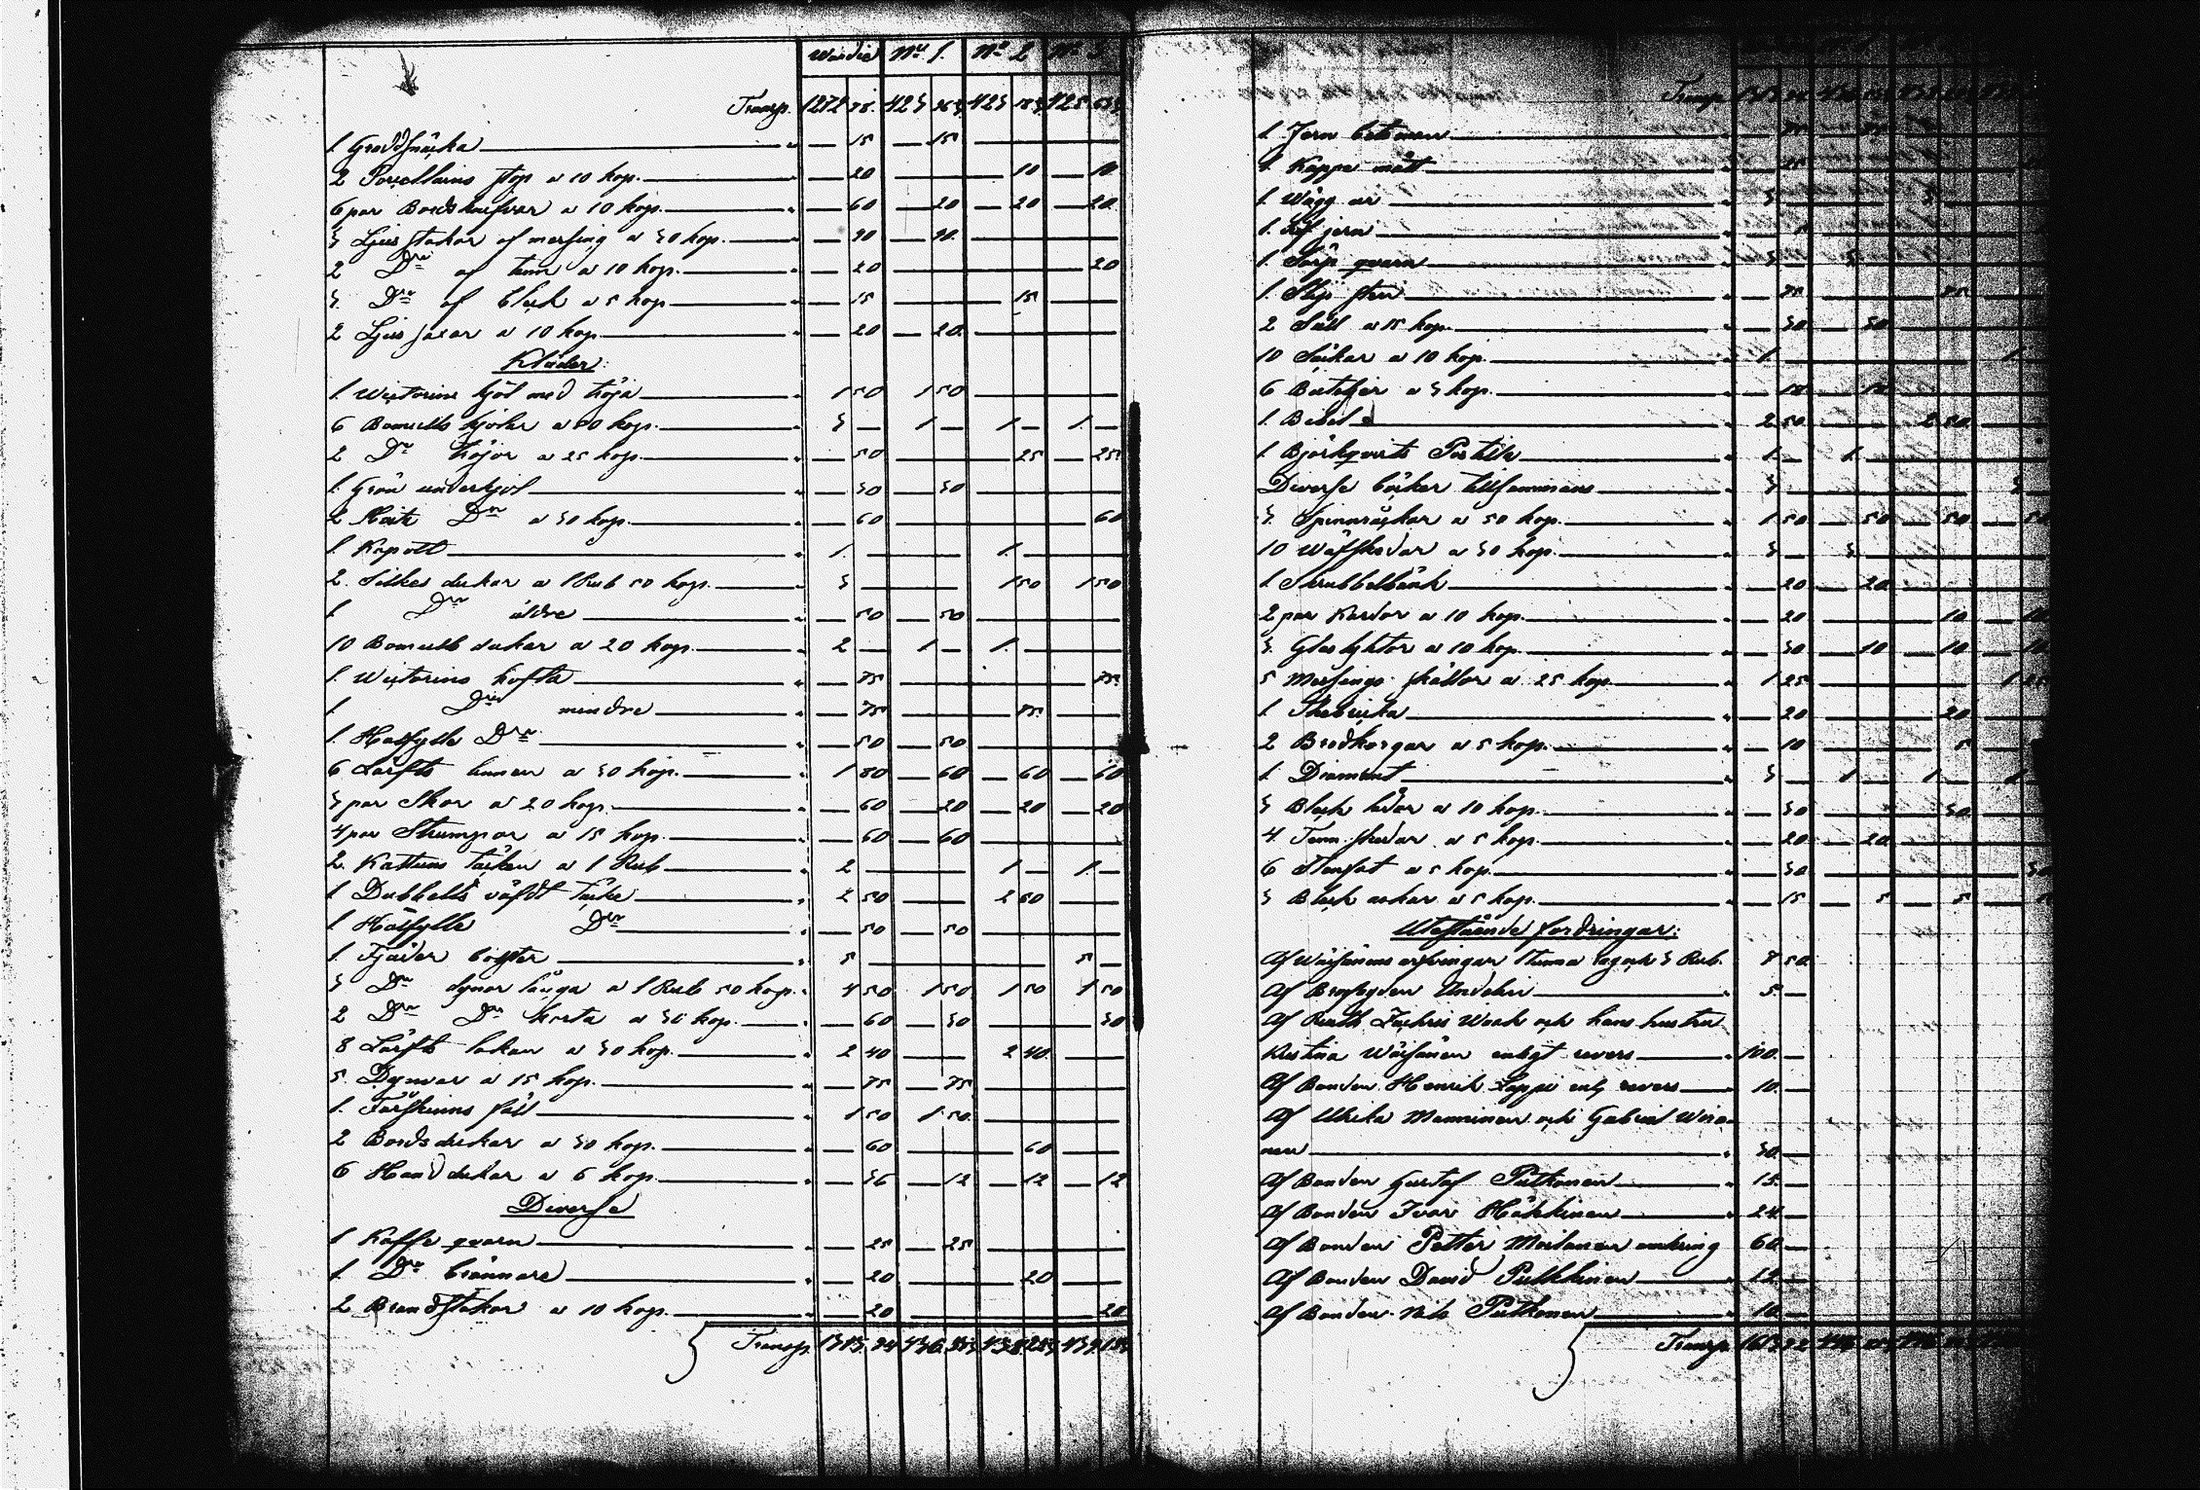 Wärdie No 1. No 2 No 3
Transp. 1272 78. 423 423 425
1 Gräddsnäcka — 15 — 15
2 Porcellains stop a 10 kop. — 20 10 — 10
6 par Bordsknifvar a 10 kop. — 60 — 20 — 20 — 20
3 Ljusstakar af messing a 30 kop. — 90 — 90
2 Dro af tenn a 10 kop. — 20 20
3 Dro af bleck a 5 kop — 15 15
2 Ljus saxar a 10 kop. — 20 — 20
Kläder:
1 kjol med tröja 1 50 1 50
6 Bomulls kjolar a 50 kop. 3 — 1 — 1 — 1 —
2 Dro tröjor a 25 kop. — 50 25 — 25
1 Grön underkjol — 30 — 30
2 Hvita Dro a 30 kop. — 60 60
1 Kapott 1 1
2 Silkes dukar a 1 Rub 50 kop. 3 1 50 1 50
1 Dro äldre — 50 50
10 Bomulls dukar a 20 kop. 2 — 1 — 1
1 kofta — 75 75
1 Dro mindre — 75 75
1 Halfylle Dro — 50 — 50
6 Lärfts linnen a 30 kop. 1 80 — 60 — 60 — 60
3 par Skor a 20 kop. — 60 — 20 — 20 — 20
4 par Strumpor a 15 kop. — 60 — 60
2 Kattuns täcken a 1 Rub 2 1 — 1 —
1 Dubbelt väfdt täcke 2 50 2 50
1 Halfylle Dro — 50 — 50
1 Fjäder bolster 5 5 —
3 Dro dynor långa a 1 Rub 50 kop. 4 50 1 50 1 50 1 50
2 Dro Dro korta a 30 kop. — 60 — 30 30
8 Lärfts lakan a 30 kop. 2 40 2 40
5 Dynvar a 15 kop. — 75 — 75
1 Fårskinns fäll 1 50 1 50
2 Bordsdukar a 30 kop. — 60 60
6 Handdukar a 6 kop. — 36 — 12 — 12 — 12
Diverse
1 Kaffe qvarn — 25 — 25
1 Dro brännare — 20 20
2 Brandstakar a 10 kop. — 20 20
Transp.
Transp.
1 Jern betsman — 75 75
1 Kappe mått — 25
1 Wägg ur 3 3
1 jern
1 qvarn 3 3
1 Slip sten — 75 75
2 Såll a 15 kop. — 30 30
10 Säckar a 10 kop. 1 1
6 a 3 kop. — 18 18
1 Bibel 2 50 2 50
1 Björkqvists Postilla 1 — 1
Diverse böcker tillsammans 3 3
3 Spinnråckar a 50 kop. 1 50 — 50 — 50 — 50
10 Wäfskedar a 30 kop. 3 — 3
1 Skrubbelbänk — 20 20
2 par Kardor a 10 kop. — 20 10 10
3 Glaslyktor a 10 kop. — 30 — 10 — 10 — 10
5 Messings skållor a 25 kop. 1 25 1 25
1 — 20 20
2 Brödkorgar a 5 kop. — 10 5 5
1 Diamant 3 — 1 1 1
3 Bleck lådor a 10 kop. — 30 30
4 Tenn skedar a 5 kop. — 20 — 20
6 Stenfat a 5 kop. — 30 30
3 Bleck askar a 5 kop. — 15 — 5 — 5 5
Utestående fordringar:
Af Wäisänens arfvingar 3 Rub. 8 50
Af 5 —
Af och hans hustru
Kristina Wäisänen enligt revers 100 —
Af Bonden Henrik Lappi enl. revers 10 —
Af Ulrika Manninen och Gabriel Wäisä-
nen 30 —
Af Bonden Gustaf Putkonen 15 —
Af Bonden Ivar Häkkinen 24 —
Af Bonden Petter omkring 60 —
Af Bonden David Pulkkinen 12 —
Af Bonden Nils Putkonen 10 —
Transp.